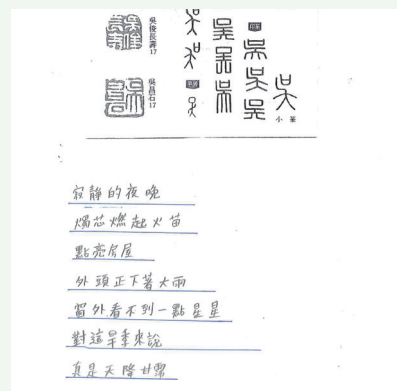 吳俊長壽17
吳昌石17
小篆
寂靜的夜晚
燭芯燃起火苗
點亮房屋
外頭正下著大雨
窗外看不到一點星星
對這旱季來說
真是天降甘霖